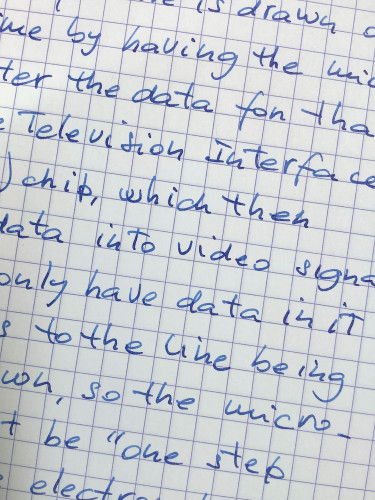 is drawn
by having the
the data for
Television Interface
) chip, which then
data into video
only have data in it
to the line being
so the micro-
be "one step